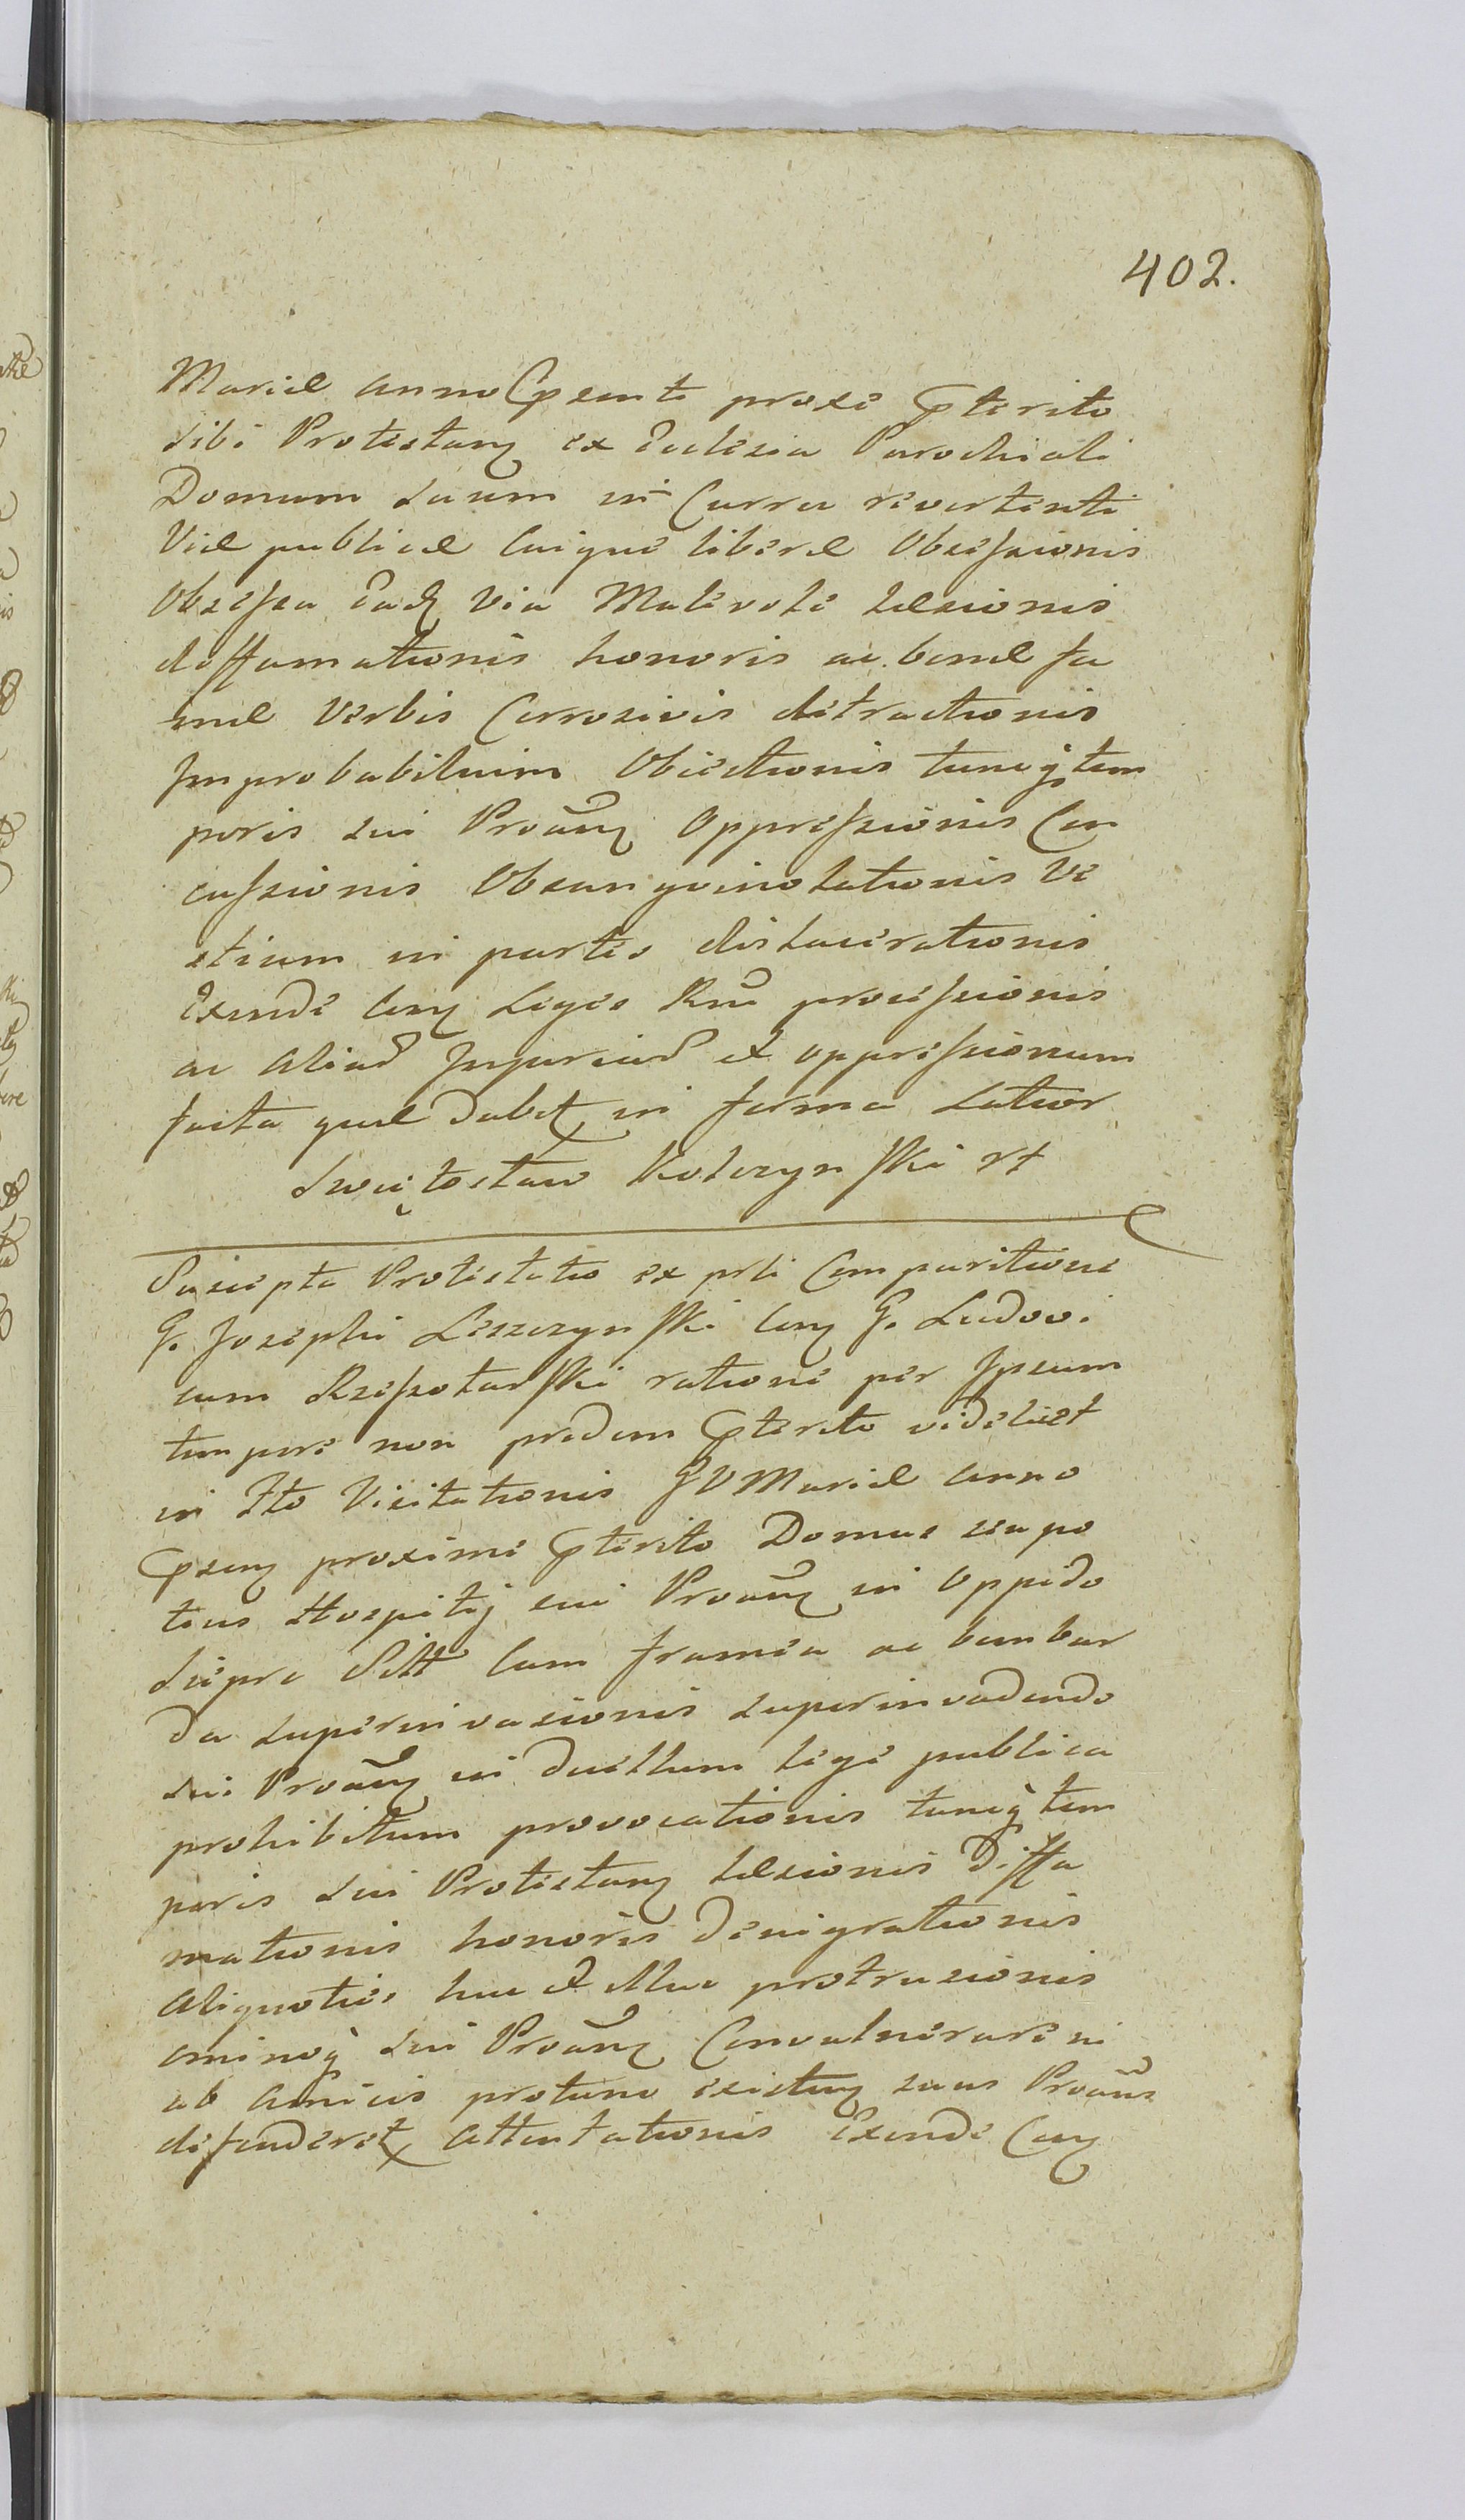 402.
Mariæ anno Pseenti proxe Pterito
sibi Protestanẽ ex Ecclesia Parochiali
Domum suam in Curru revertenti
Viæ publicæ Cuique liberæ Obsessionis
Obsessa Eadē via Malevole læsionis
diffamationis honoris ac bonæ fa
mæ verbis Corrosivis detractionis
Improbabilium Obiectionis tuncq tem
poris sui Proanẽ Oppressionis Con
cussionis Obsanguinolationis Ve
stium in partes dislacerationis
Exinde Conẽ Leges Rni processionis
ac Aliar Injuriar et oppressionum
facta quæ dabit in forma Latior
Swiętosław Kolczynſki rt
Suscepta Protestatio ex prli Comparitione
G. Josephi Leszczynſki Conẽ G. Ludovi
cum Rzeszotarſki ratione per Ipsum
tempore non pridem Pterito videlicet
in Fto Visitationis BVMariæ anno
Psenẽ proxime Pterito Domus seu po
tius Hospitij sui Proanẽ in Oppido
Sierpc Sitt Cum framea ac bombar
da superinvasionis superinvadendo
sui Proanẽ in duellum lege publica
prohibitum provocationis tuncq tem
poris sui Protestanẽ læsionis Diffa
mationis honoris denigrationis
Aliquoties huc et illuc protrusionis
ominoq sui Proanẽ Convulnerare ni
ab Amicis protunc existenẽ suus Proans
defenderet Attentationis Exinde Conẽ